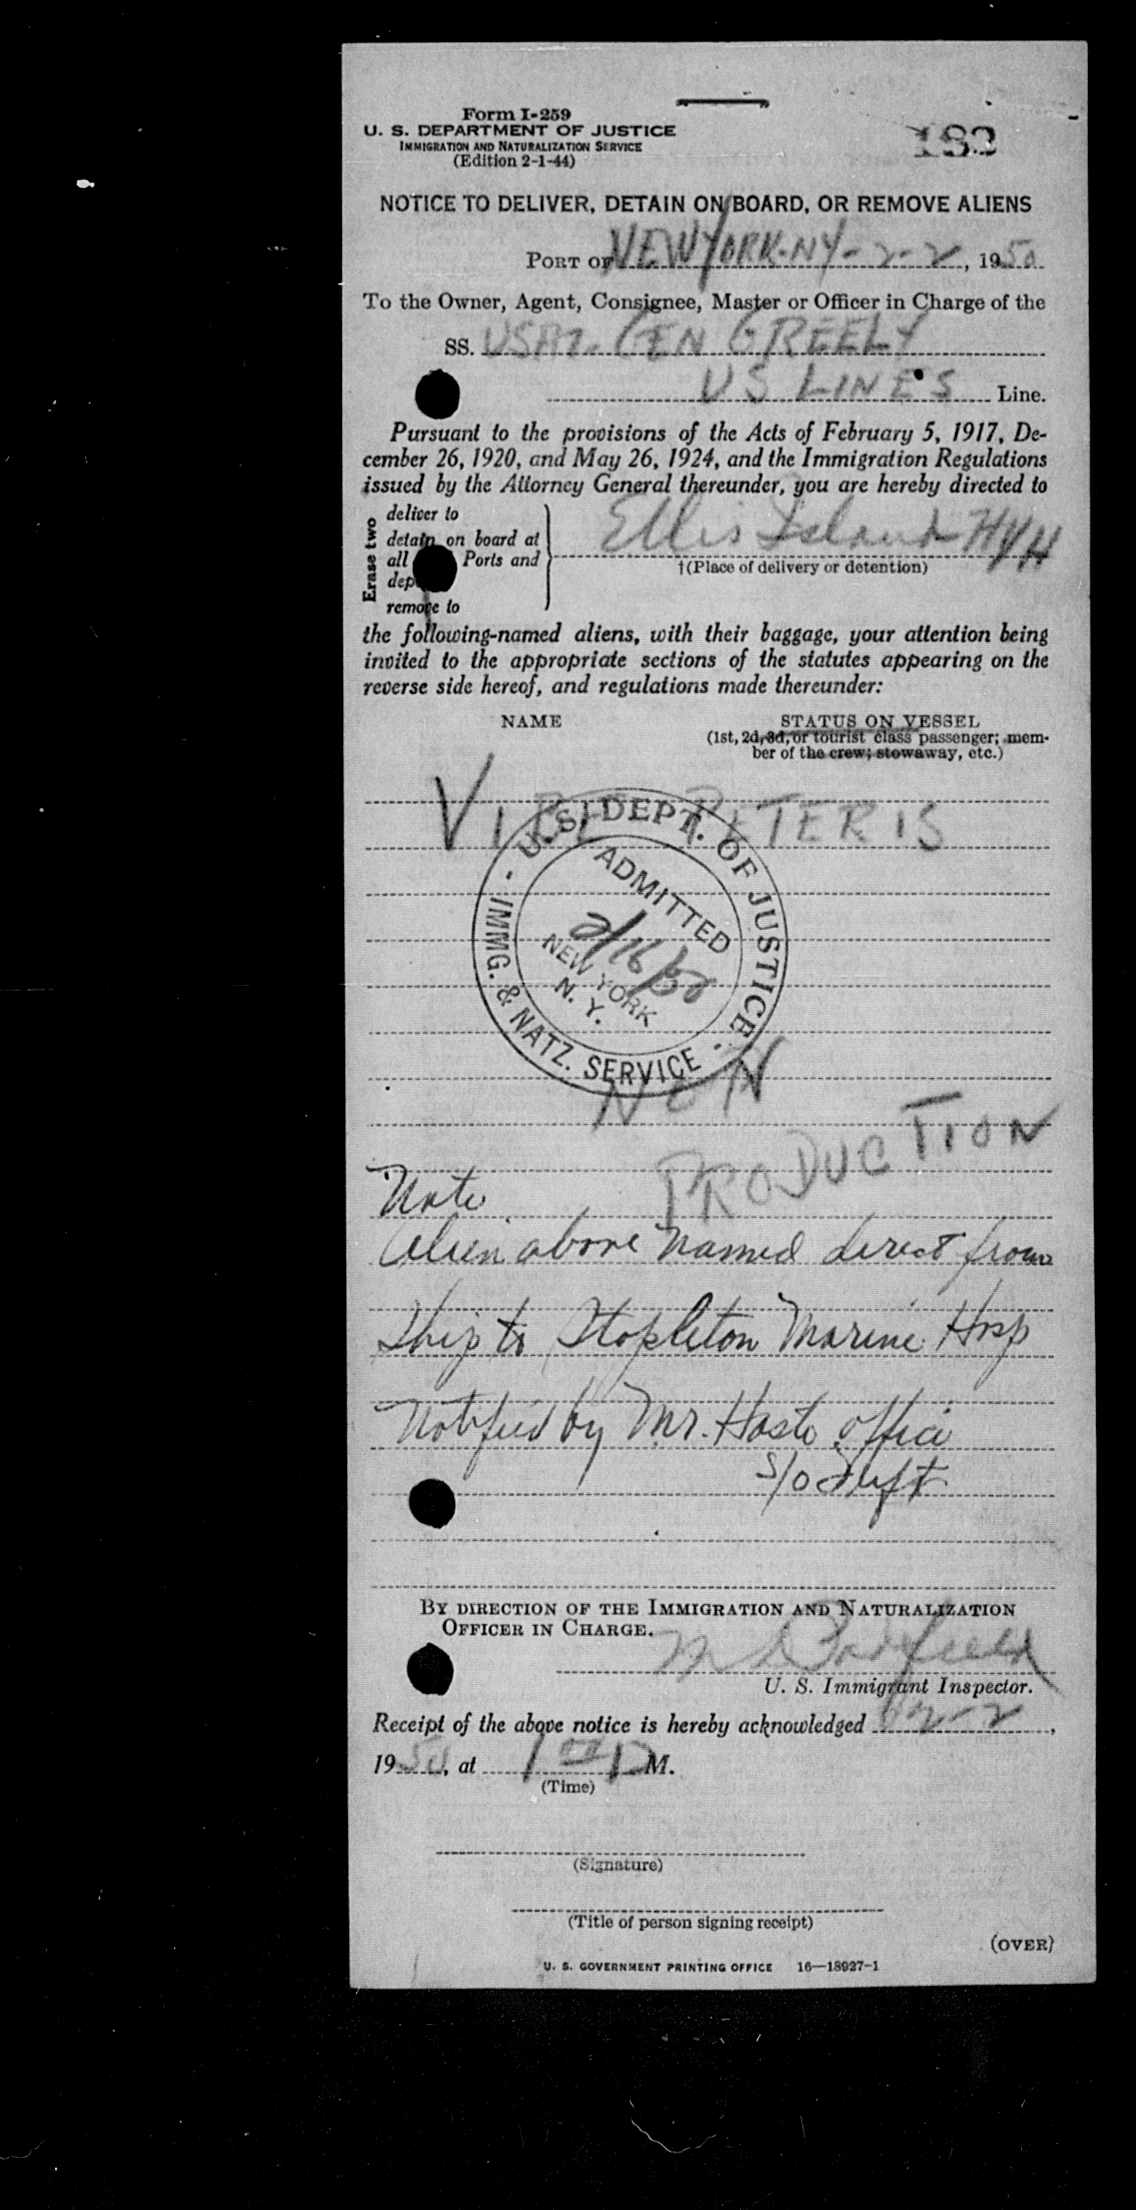 Form I-259
U. S. DEPARTMENT OF JUSTICE
IMMIGRATION AND NATURALIZATION SERVICE
(Edition 2-1-44)
183
NOTICE TO DELIVER, DETAIN ON BOARD, OR REMOVE ALIENS
PORT OF NEW YORK-NY- 2-2, 1950
To the Owner, Agent, Consignee, Master or Officer in Charge of the
SS. USAT. GEN GREELY
US LINES Line.
Pursuant to the provisions of the Acts of February 5, 1917, De-
cember 26, 1920, and May 26, 1924, and the Immigration Regulations
issued by the Attorney General thereunder, you are hereby directed to
Erase two
deliver to
detain on board at
all Ports and
dep
remove to
Ellis Island NYH
†(Place of delivery or detention)
the following-named aliens, with their baggage, your attention being
invited to the appropriate sections of the statutes appearing on the
reverse side hereof, and regulations made thereunder:
NAME
STATUS ON VESSEL
(1st, 2d, 3d, or tourist class passenger; mem-
ber of the crew; stowaway, etc.)
PETERIS
U. S. DEPT. OF JUSTICE
ADMITTED
2/16/50
NEW YORK
N. Y.
IMMG. & NATZ. SERVICE
NON
PRODUCTION
Note
Alien above named direct from
Ship to Stapleton Marine Hosp
Notified by Mr. office
S/O
BY DIRECTION OF THE IMMIGRATION AND NATURALIZATION
OFFICER IN CHARGE.
U. S. Immigrant Inspector.
Receipt of the above notice is hereby acknowledged 2-2,
1950, at 1 00 P M.
(Time)
(Signature)
(Title of person signing receipt)
(OVER)
U. S. GOVERNMENT PRINTING OFFICE 16—18927-1